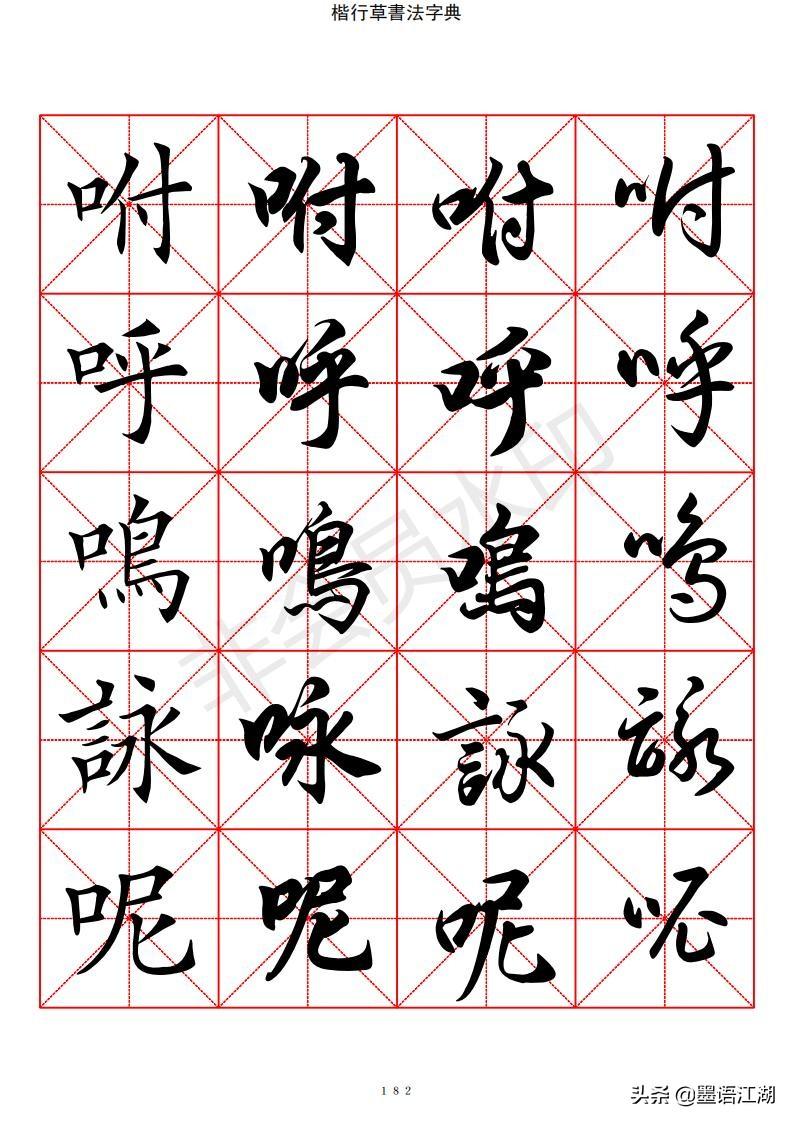 楷行草書法字典
咐咐咐咐
呼呼呼呼
鳴鳴鳴鳴
詠咏詠詠
呢呢呢呢
非会员水印
182
头条 @墨语江湖